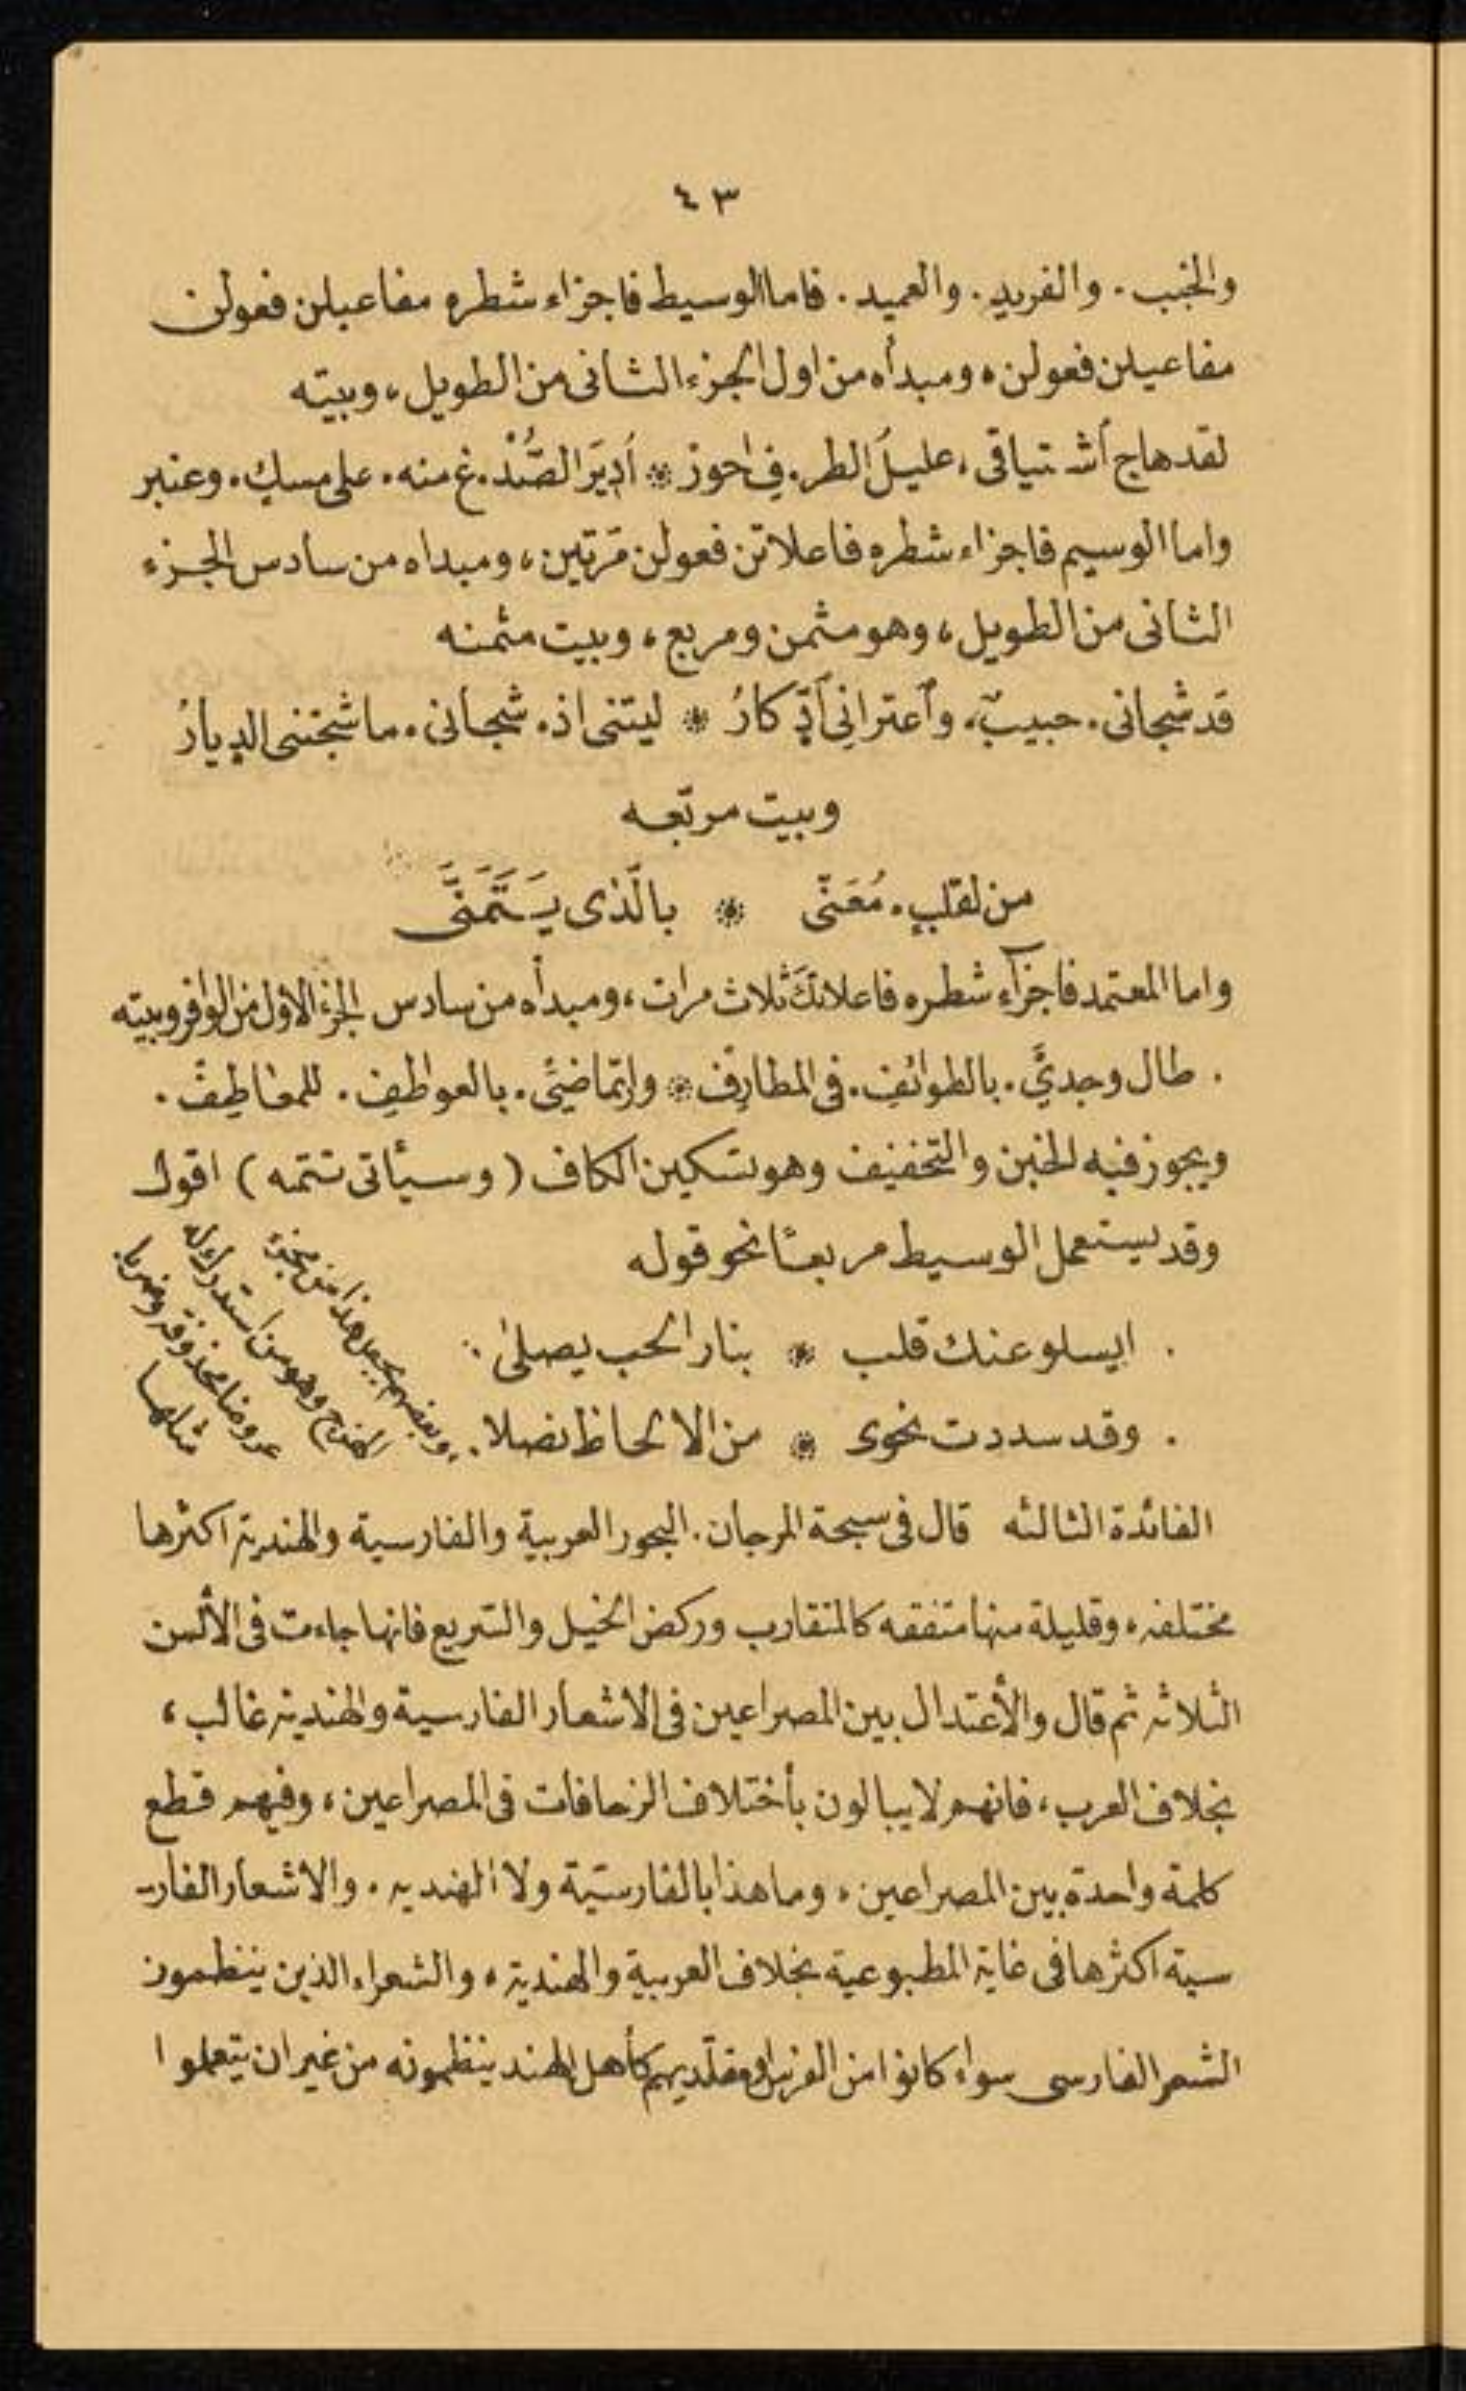 ٤٣
والخبب. والفريد. والعميد. فاما الوسيط فاجزاء شطره مفاعيلن فعولن
مفاعيلن فعولن، ومبدأه من اول الجزء الثانى من الطويل، وبيته
لقد هاج أشتياقى. عليلَ الطر. فِ احوز * أدِيَر الصُّدْ. غ منه. على مسكٍ. وعنبر
واما الوسيم فاجزاء شطره فاعلاتن فعولن مَرتين، ومبداه من سادس الجزء
الثانى من الطويل، وهو مثمن ومربع، وبيت مثمنه
قَد شَجانى. حبيبٌ. وٱعترانِى ٱدِّكارُ * ليتنى اذ. شجانى. ما شجتنى الديارُ
وبيت مربَّعه
من لقلبٍ. مُعَنّى * بالَّذى يَتَمَنَّى
واما المعتمد فاجزآء شطره فاعلاتكَ ثلاث مرات، ومبدأه من سادس الجزء الاول من الوافر وبيته
. طال وجديَّ. بالطوائفِ. فى المطارِف * وارتماضيَّ. بالعواطِفِ. للمعاطِفِ.
ويجوز فيه الخبن والتخفيف وهو تسكين الكاف (وسيأتى تتمه) اقول
وقد يستعمل الوسيط مربعًا نحو قوله
. ايسلو عنك قلب * بنار الحب يصلىٰ.
. وقد سددت نحوى * من الالحاظ نصلا.
وبعضهم يجعل هذا من مجزء
الهزج وهو من استدراكه
عروضا محذوفة وضربا
مثلها
الفائدة الثالثه قال فى سبحة المرجان. البحور العربية والفارسية والهندية اكثرها
مختلفه، وقليلة منها متفقه كالمتقارب وركض الخيل والسريع فانها جاءت فى الألسن
الثلاثه ثم قال والأعتدال بين المصراعين فى الاشعار الفارسية والهنديه غالب،
بخلاف العرب، فانهم لا يبالون بأختلاف الزحافات فى المصراعين، وفيهم قطع
كلمة واحدة بين المصراعين، وما هذا بالفارسيّة ولا الهنديه. والاشعار الفار-
سية اكثرها فى غاية المطبوعية بخلاف العربية والهندية، والشعراء الذين ينظمون
الشعر الفارسى سواء كانوا من الفرس او مقلّديهم كأهل الهند ينظمونه من غير ان يتعلموا